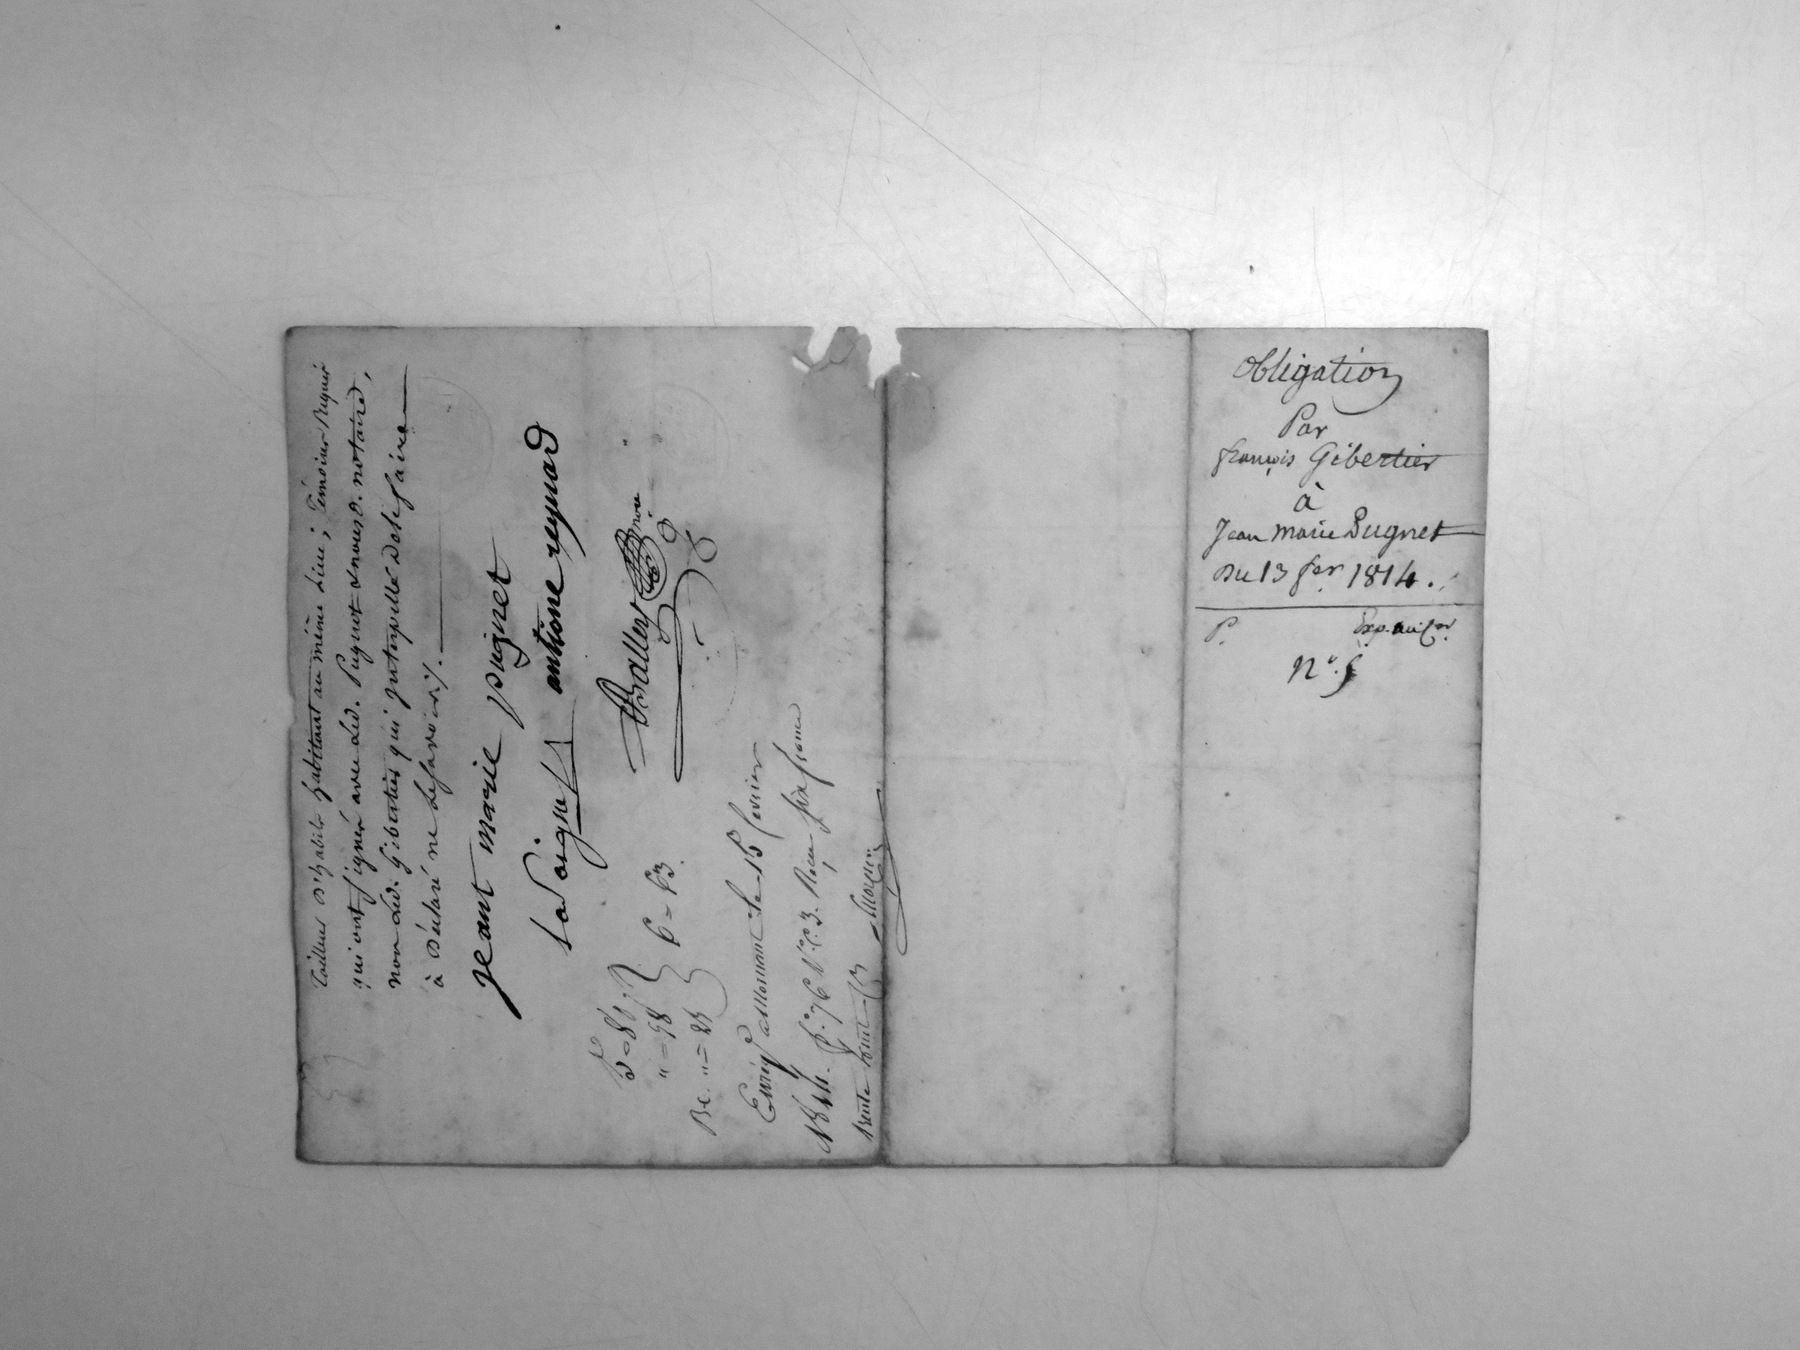 tailleur D'habits habitant au même Lieu; Témoins Requis
qui ont signés avec led. Pugnet & nousd. notaire,
non led. Gibertier qui interpellé de le faire
à Déclaré ne Le savoir ./.
jeant marie pugnet
antione reynard
Balley nore
5 = 80
" = 58
Be. " = 25
6 = 63
Enregé Le 15 fevrier
1814. fo. 76 Vo. C. 3. Reçu six francs
trente
Obligation
Par
françois Gibertier
à
Jean Marie Pugnet
Du 13 fer 1814.
P. Exp. au Cer
No. 5